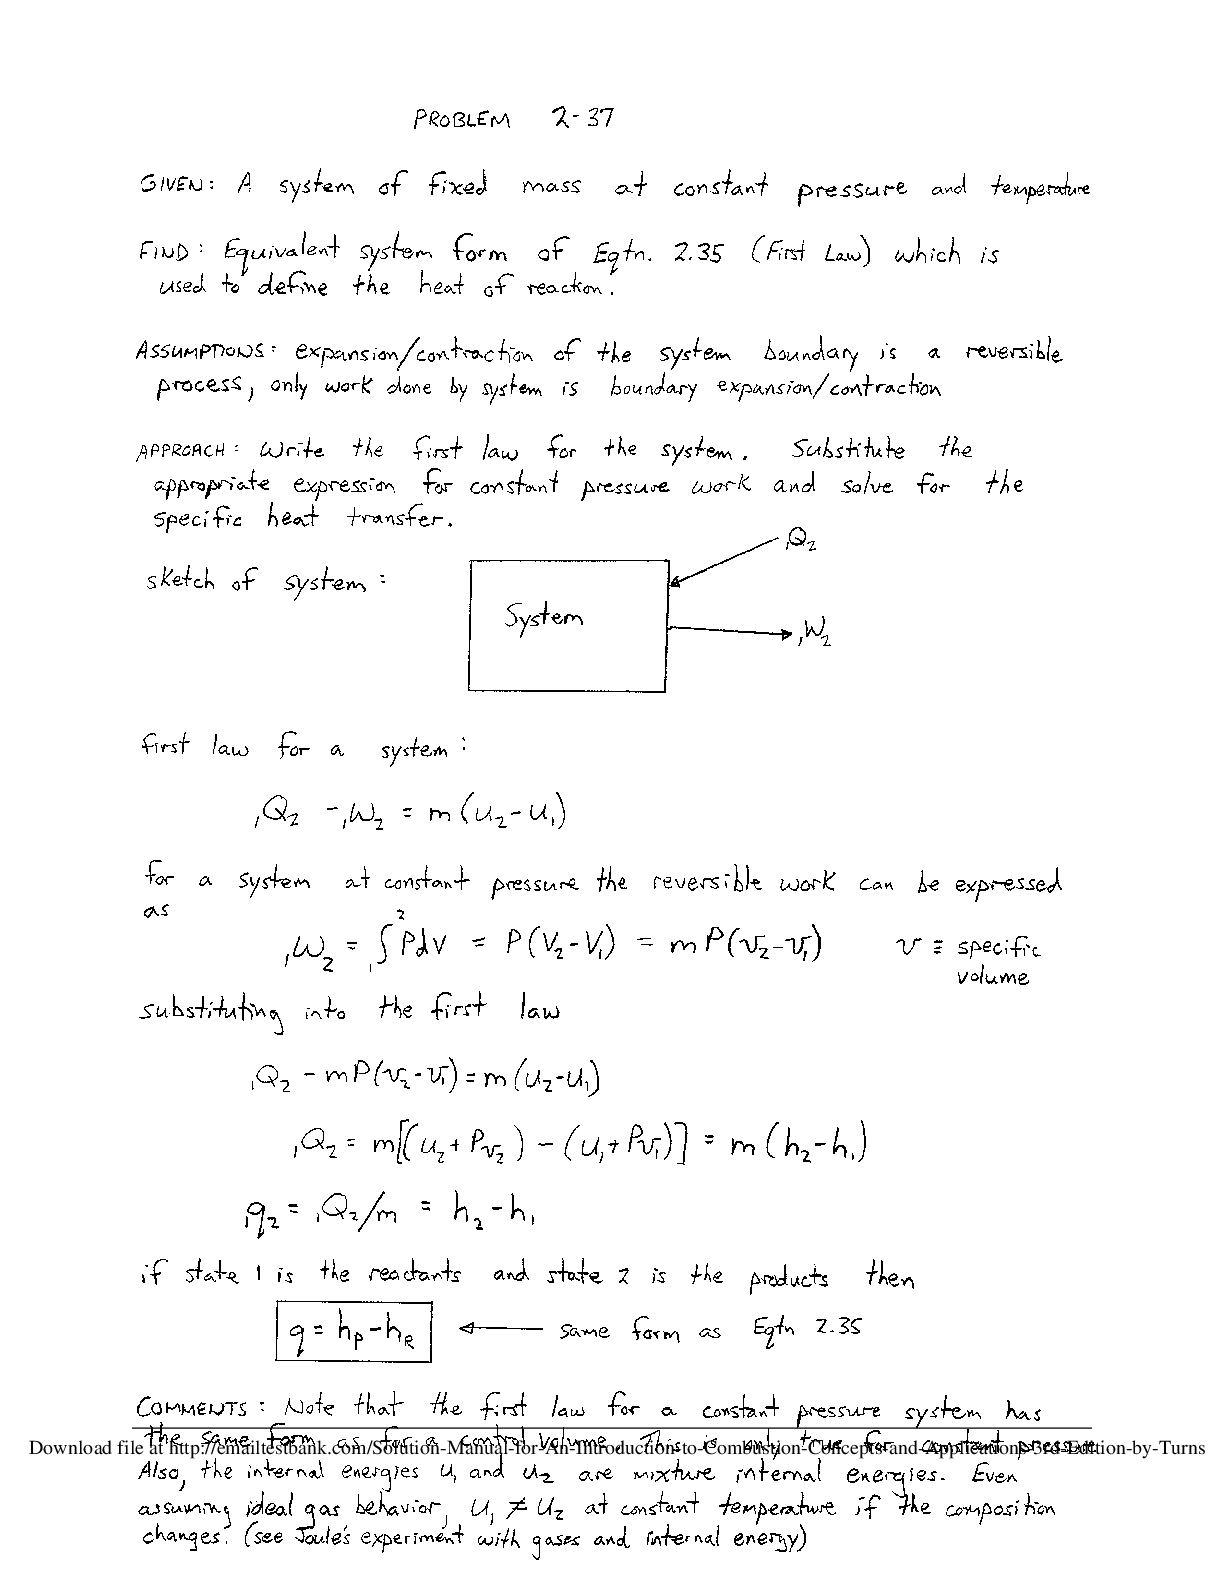 PROBLEM 2-37
GIVEN: A system of fixed mass at constant pressure and temperature
FIND: Equivalent system form of Eqtn. 2.35 (First Law) which is
used to define the heat of reaction.
ASSUMPTIONS: expansion/contraction of the system boundary is a reversible
process, only work done by system is boundary expansion/contraction
APPROACH: Write the first law for the system. Substitute the
appropriate expression for constant pressure work and solve for the
specific heat transfer.
₁Q₂
sketch of system:
System
₁W₂
first law for a system:
₁Q₂ - ₁W₂ = m(u₂-u₁)
for a system at constant pressure the reversible work can be expressed
as
₁W₂ = ∫₁² PdV = P(V₂-V₁) = mP(v₂-v₁) v ≡ specific
volume
substituting into the first law
₁Q₂ - mP(v₂-v₁) = m(u₂-u₁)
₁Q₂ = m[(u₂+Pv₂) - (u₁+Pv₁)] = m(h₂-h₁)
₁q₂ = ₁Q₂/m = h₂-h₁
if state 1 is the reactants and state 2 is the products then
q = hP-hR ← same form as Eqtn 2.35
COMMENTS: Note that the first law for a constant pressure system has
the same form as for a control volume. This is only true for constant pressure
Download file at http://emailtestbank.com/Solution-Manual-for-An-Introduction-to-Combustion-Concepts-and-Applications-3rd-Edition-by-Turns
Also, the internal energies u₁ and u₂ are mixture internal energies. Even
assuming ideal gas behavior, u₁ ≠ u₂ at constant temperature if the composition
changes. (see Joule's experiment with gases and internal energy)